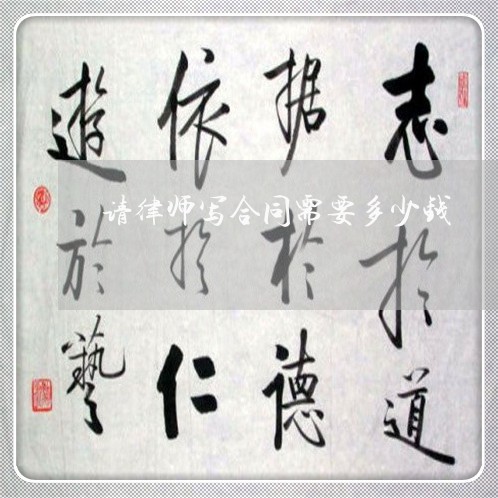 志於道
据於德
依於仁
遊於藝
请律师写合同需要多少钱